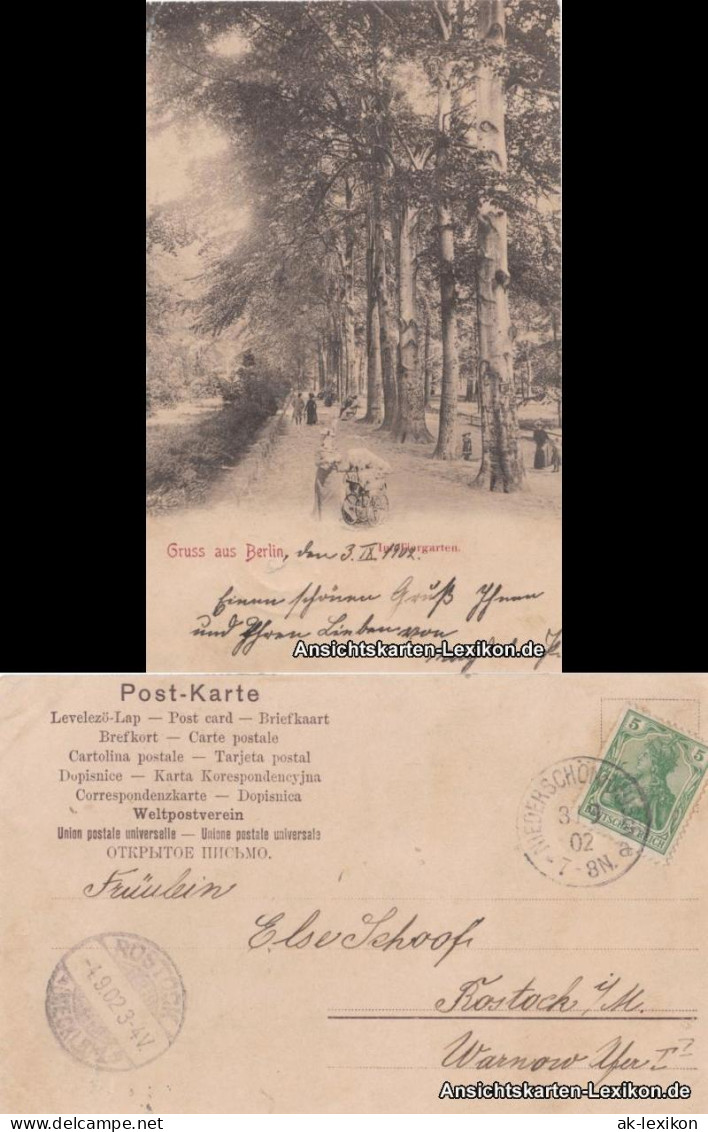 Gruss aus Berlin, den 3. IX 1902. Im Tiergarten.
Einen schönen Gruß Ihnen
und Ihren Lieben von
Ansichtskarten-Lexikon.de
Post-Karte
Levelezö-Lap — Post card — Briefkaart
Brefkort — Carte postale
Cartolina postale — Tarjeta postal
Dopisnice — Karta Korespondencyjna
Correspondenzkarte — Dopisnica
Weltpostverein
Union postale universelle — Unione postale universale
ОТКРЫТОЕ ПИСЬМО.
5 5
DEUTSCHES REICH
02
7-8N.
Fräulein
Else Schoof
ROSTOCK
-4.9.02.3-4V.
Rostock i/M.
Warnow Ufer
Ansichtskarten-Lexikon.de
ak-lexikon